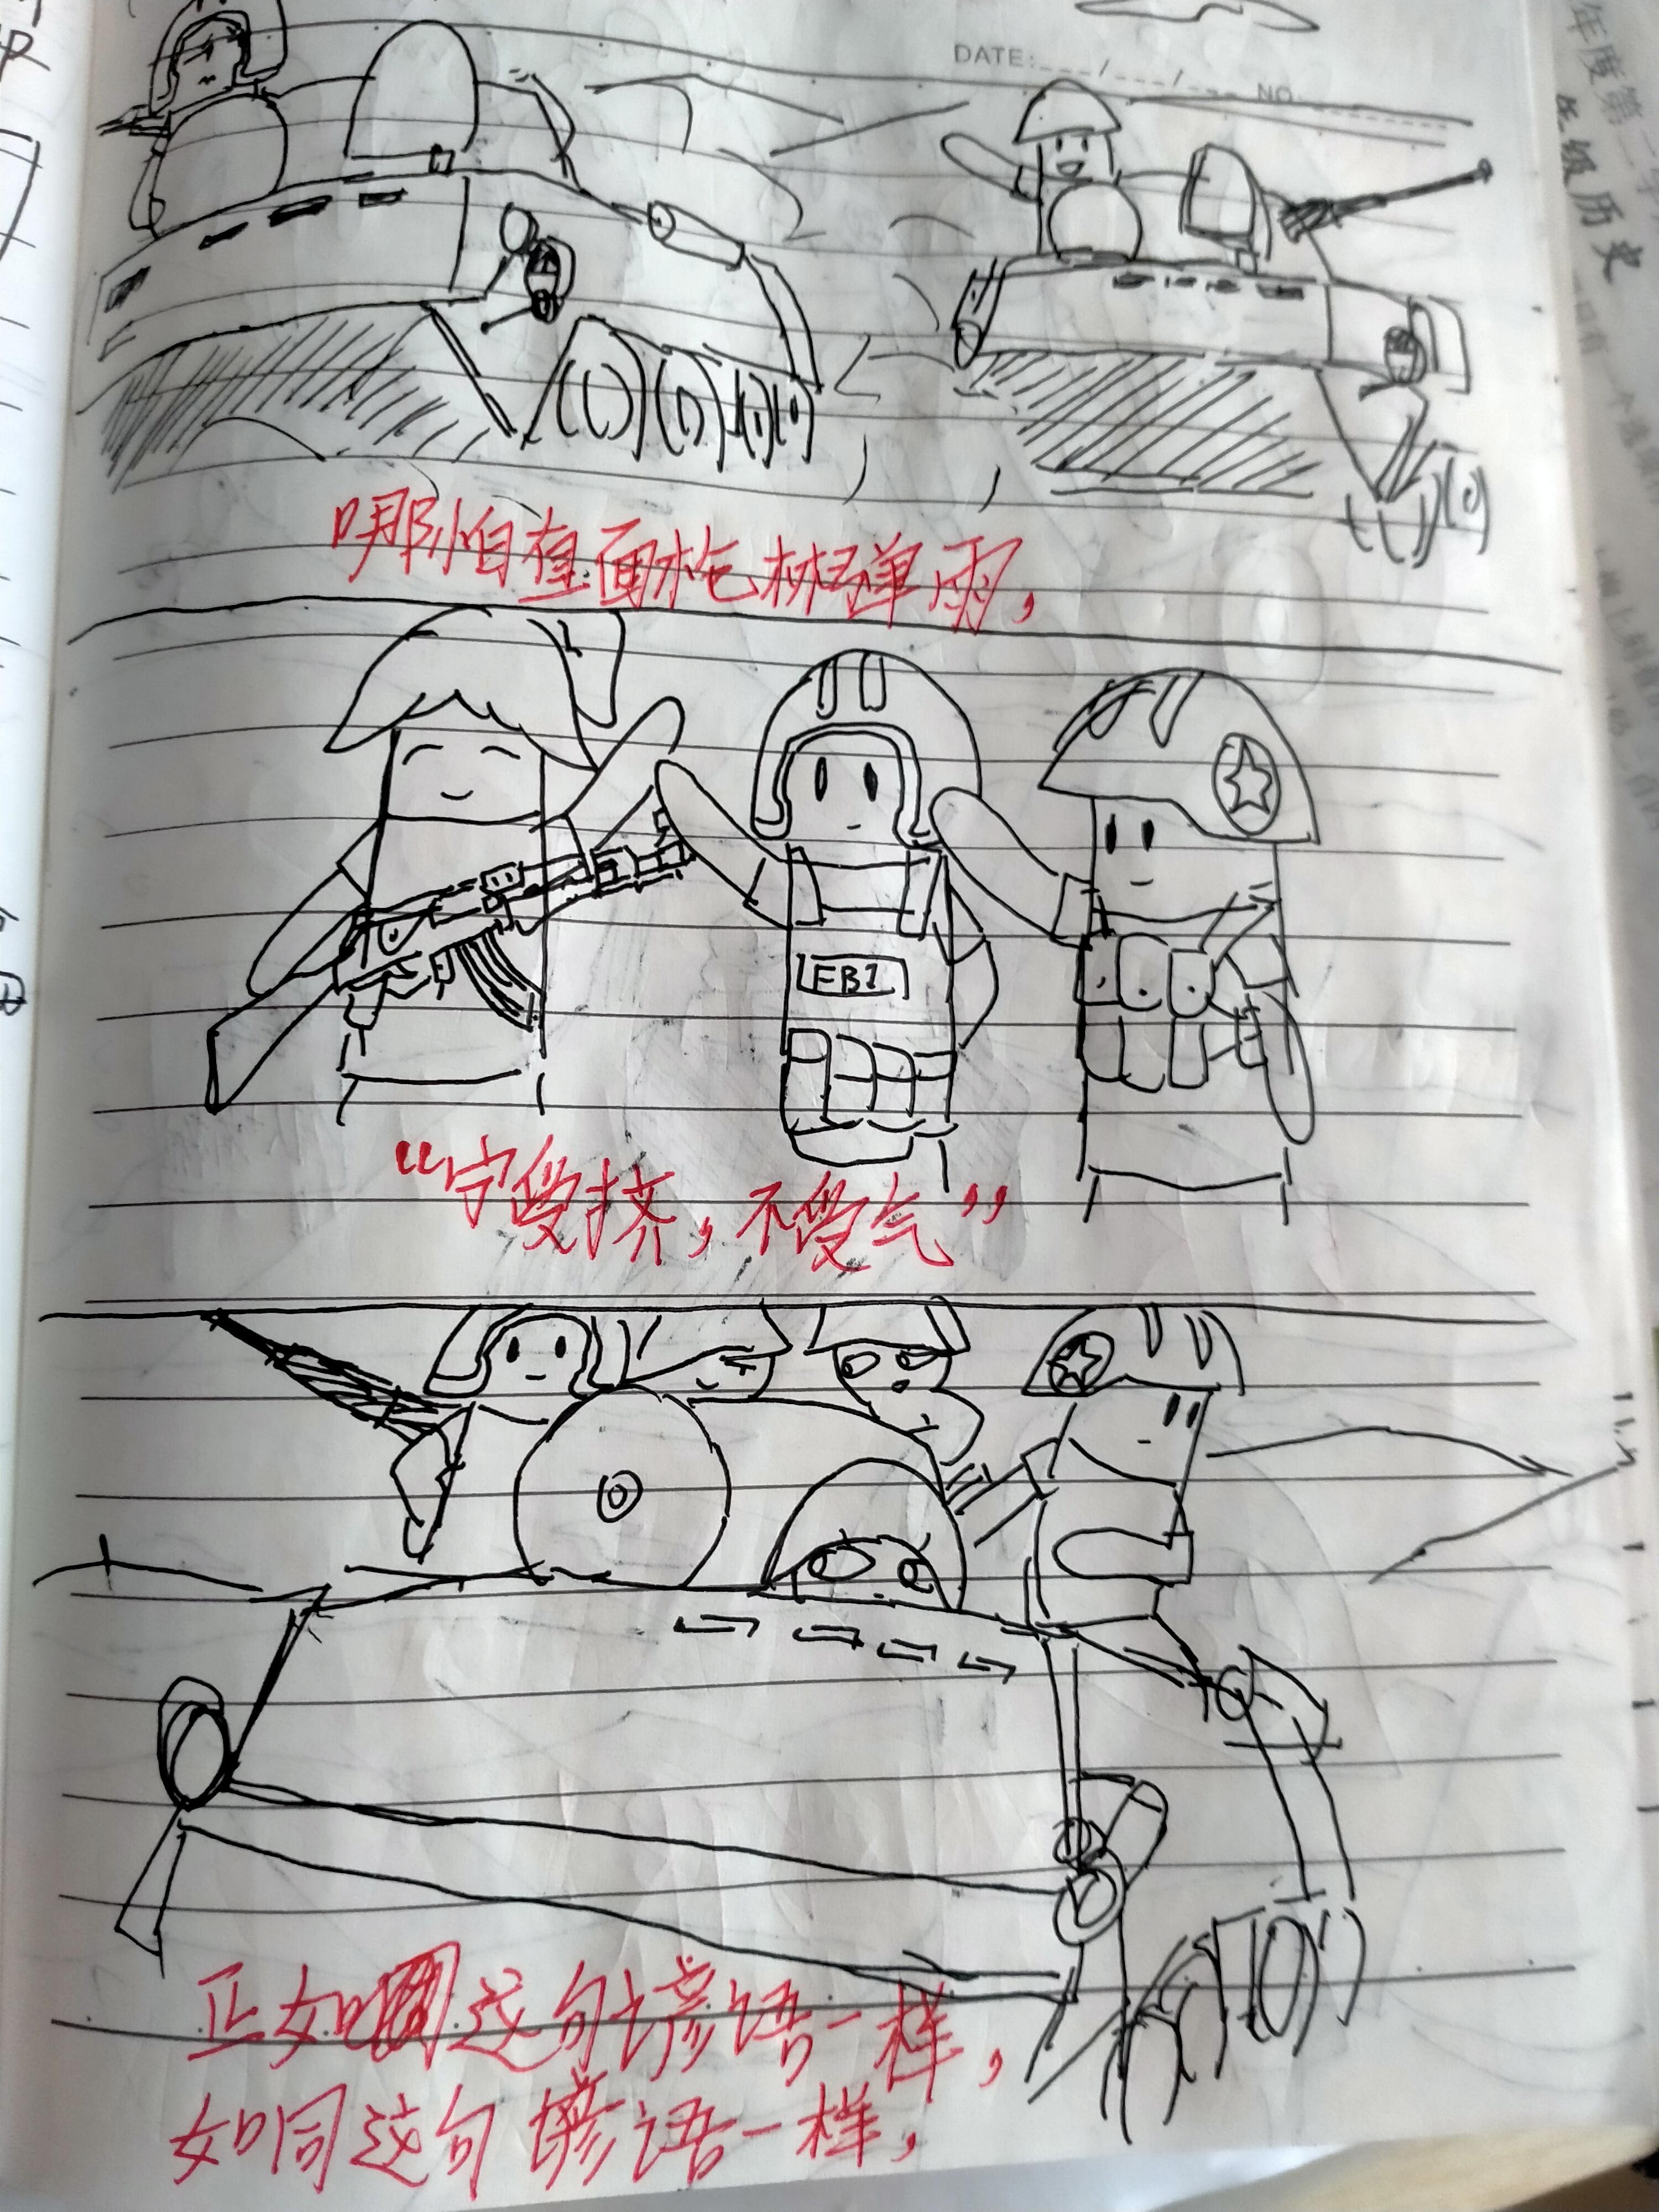 DATE: ___/___/___ NO.
哪怕直面枪林弹雨,
FBI
“宁受挤，不受气”
正如 这句谚语一样,
如同这句谚语一样,